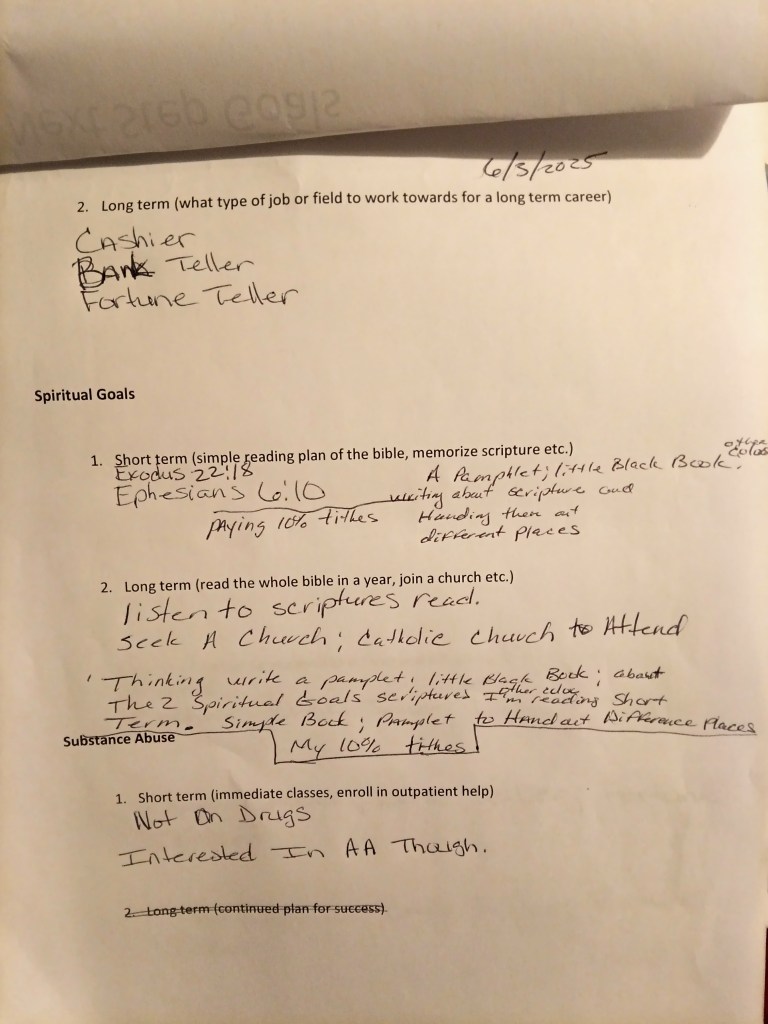 Next Step Goals
6/3/2025
2. Long term (what type of job or field to work towards for a long term career)
Cashier
Bank Teller
Fortune Teller
Spiritual Goals
1. Short term (simple reading plan of the bible, memorize scripture etc.)
Exodus 22:18
Ephesians 6:10
paying 10% tithes
other
color
A Pamphlet; little Black Book.
writing about scripture and
Handing them out
different places
2. Long term (read the whole bible in a year, join a church etc.)
listen to scriptures read.
Seek A Church; Catholic church to Attend
Thinking write a pamplet; little Black Book; about
other color
The 2 Spiritual Goals scriptures I'm reading Short
Term. Simple Book; Pamplet to Hand out Difference Places
My 10% tithes
Substance Abuse
1. Short term (immediate classes, enroll in outpatient help)
Not On Drugs
Interested In AA Though.
2. Long term (continued plan for success)